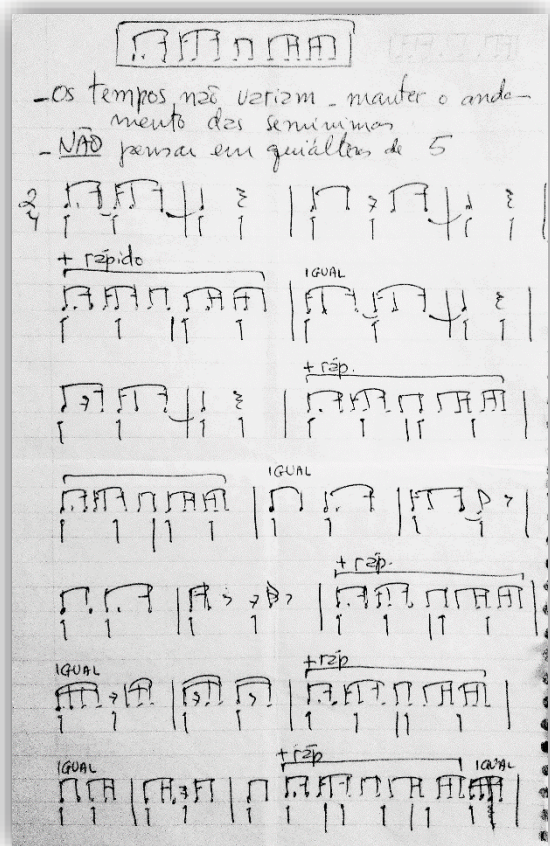 - Os tempos não variam - manter o anda-
mento das semínimas
- NÃO pensar em quiálteras de 5
2
4
+ rápido
IGUAL
+ ráp.
IGUAL
+ ráp.
IGUAL
+ ráp
IGUAL
+ ráp
IGUAL